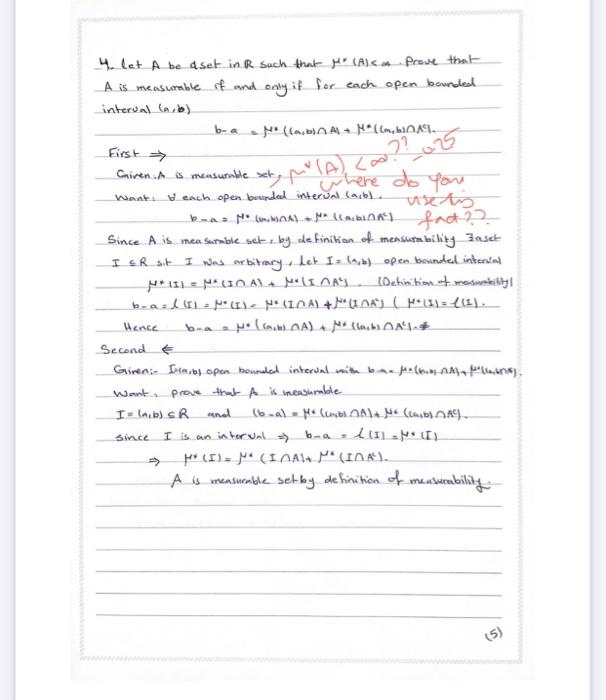 4. let A be a set in R such that μ* (A) < ∞. Prove that
A is measurable if and only if for each open bounded
interval (a,b)
b-a = μ* ((a,b)∩A) + μ*((a,b)∩Aᶜ).
First ⇒
Given: A is measurable set, μ*(A) < ∞ ?? -0.75
where do you
Want: ∀ each open bounded interval (a,b).
use this
b-a = μ* ((a,b)∩A) + μ* ((a,b)∩Aᶜ)
fact??
Since A is measurable set, by definition of measurability ∃ a set
I ⊆ R s.t I was arbitrary, Let I = (a,b) open bounded interval
μ* (I) = μ* (I∩A) + μ* (I∩Aᶜ). (Definition of measurability)
b-a = l (I) = μ* (I) = μ* (I∩A) + μ* (I∩Aᶜ) ( μ*(I) = l(I).
Hence b-a = μ* ((a,b)∩A) + μ* ((a,b)∩Aᶜ). #
Second ⇐
Given:- I=(a,b) open bounded interval with b-a = μ*((a,b)∩A) + μ*((a,b)∩Aᶜ).
Want: prove that A is measurable
I = (a,b) ⊆ R and (b-a) = μ* ((a,b)∩A) + μ* ((a,b)∩Aᶜ).
since I is an interval ⇒ b-a = l (I) = μ* (I)
⇒ μ* (I) = μ* (I∩A) + μ* (I∩Aᶜ).
A is measurable set by definition of measurability.
(5)